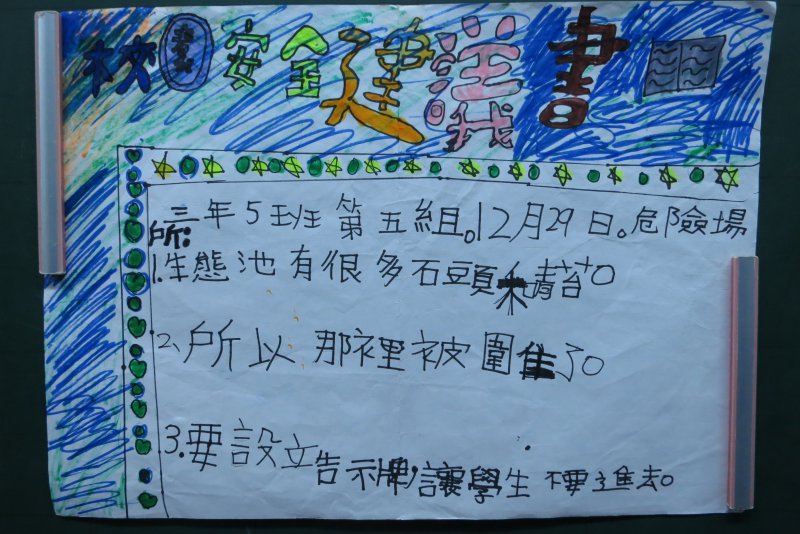 校園安全建議書
三年5班第五組。12月29日。危險場
所:
1.生態池有很多石頭和青苔。
2、所以那裡被圍住了。
3.要設立告示牌,讓學生不要進去。